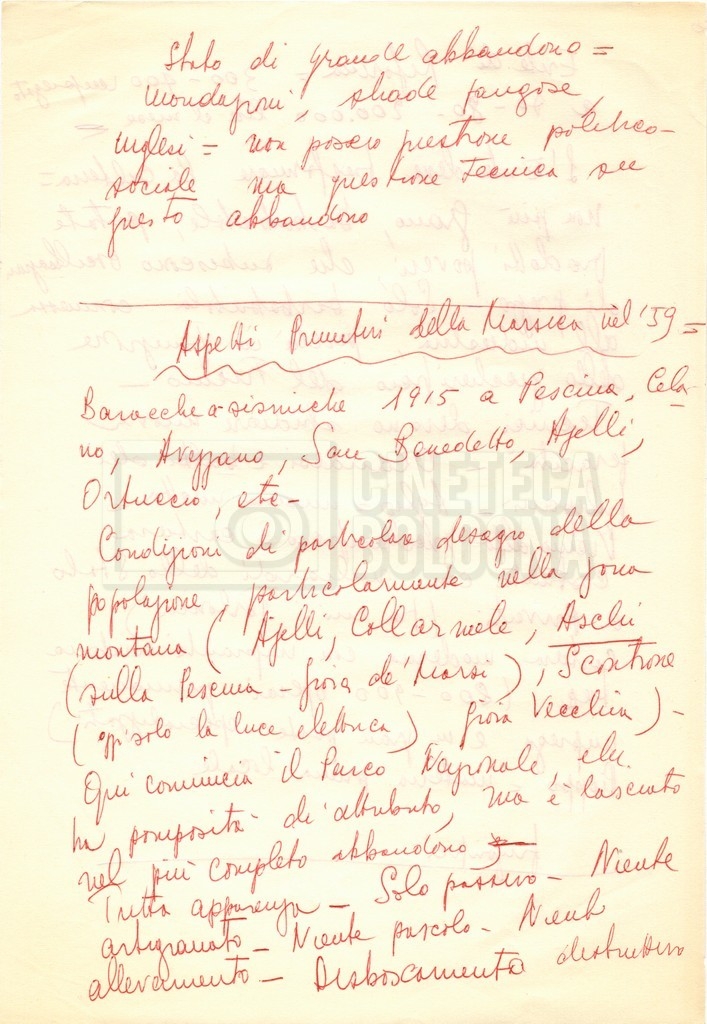 Stato di grande abbandono =
Mondazioni, strade fangose,
Inglesi = non posero questione politico-
sociale ma questione tecnica su
questo abbandono
Aspetti Primitivi della Marsica nel '59 =
Baracche a-sismiche 1915 a Pescina, Cela-
no, Avezzano, San Benedetto, Ajelli,
Ortuccio, etc-
Condizioni di particolare disagio della
popolazione, particolarmente nella zona
montana (Ajelli, Collarmele, Aschi
(sulla Pescina - Gioia de' Marsi), Scontrone
(oggi solo la luce elettrica) Gioia Vecchia) -
Qui comincia il Parco Nazionale, che
ha pomposità di attributo, ma è lasciato
nel più completo abbandono
Tutta apparenza - Solo passivo - Niente
artigianato - Niente pascolo - Niente
allevamento - Disboscamento distruttivo
CINETECA
BOLOGNA